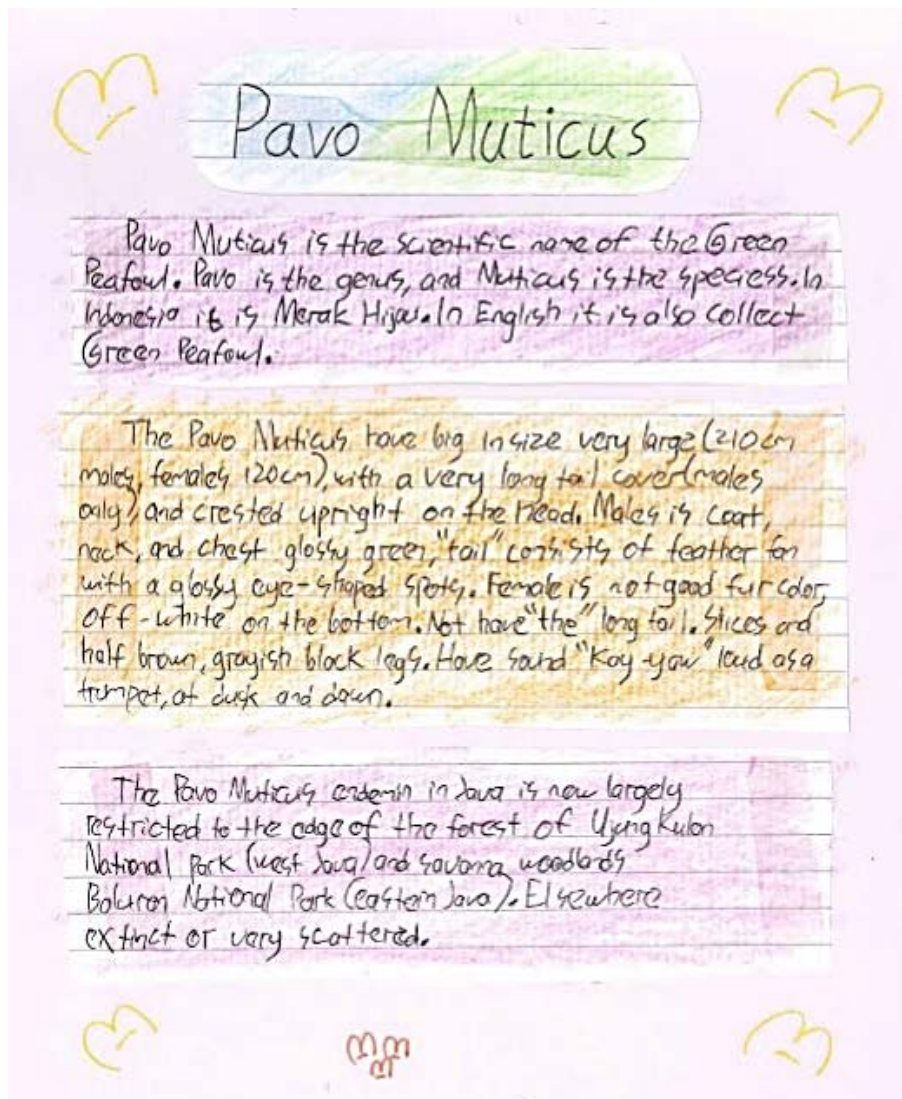 Pavo Muticus
Pavo Muticus is the scientific name of the Green
Peafowl. Pavo is the genus, and Muticus is the speciess. In
Indonesia it is Merak Hijau. In English it is also collect
Green Peafowl.
The Pavo Muticus have big in size very large (210 cm
males, females 120cm), with a very long tail cover (males
only), and crested upright on the head. Males is coat,
neck, and chest glossy green, "tail" consists of feather fan
with a glossy eye-shaped spots. Female is not good fur color,
off-white on the bottom. Not have "the" long tail. Slices and
half brown, grayish black legs. Have sound "Kay-yaw" loud as a
trumpet, at dusk and dawn.
The Pavo Muticus endemin in Java is now largely
restricted to the edge of the forest of Ujung Kulon
National Park (west Java) and savanna woodlands
Baluran National Park (eastern Java). Elsewhere
extinct or very scattered.